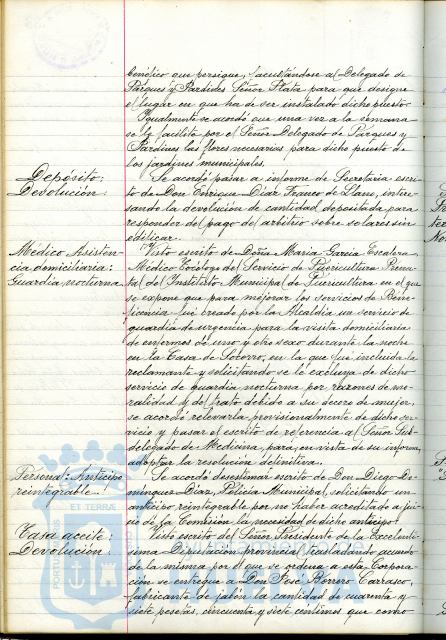 benéfico que persigue, facultándose al Delegado de
Parques y Jardines Señor Plata para que designe
el lugar en que ha de ser instalado dicho puesto.
Igualmente se acordó que una vez a la semana
se le facilite por el Señor Delegado de Parques y
Jardines las flores necesarias para dicho puesto de
los jardines municipales.
Depósito:
Devolución:
Se acordó pasar a informe de Secretaría escri-
to de Don Enrique Díaz Franco de Llano, intere-
sando la devolución de cantidad depositada para
responder del pago de arbitrio sobre solares sin
edificar.
Médico Asisten-
cia domiciliaria:
Guardia nocturna.
Visto escrito de Doña Maria Garcia Escalera
Médico Tocólogo del Servicio de Puericultura Prena-
tal del Instituto Municipal de Puericultura en el que
se expone que para mejorar los servicios de Bene-
ficencia fué creado por la Alcaldía un servicio de
guardia de urgencia para la visita domiciliaria
de enfermos de uno y otro sexo durante la noche
en la Casa de Socorro, en la que fué incluida la
reclamante y solicitando se le excluya de dicho
servicio de guardia nocturna por razones de mo-
ralidad y de trato debido a su decoro de mujer,
se acordó relevarla provisionalmente de dicho ser-
vicio y pasar el escrito de referencia al Señor Sub-
delegado de Medicina, para, en vista de su informe
adoptar la resolución definitiva.
Personal: Anticipo
reintegrable:
Se acordó desestimar escrito de Don Diego Do-
minguez Diaz, Policia Municipal, solicitando un
anticipo reintegrable por no haber acreditado a jui-
cio de la Comisión la necesidad de dicho anticipo.
Tasa aceite:
Devolución:
Visto escrito del Señor Presidente de la Excelentí-
sima Diputación provincial, trasladando acuerdo
de la misma por el que se ordena a esta Corpora-
ción se entregue a Don José Borrero Carrasco,
fabricante de jabón la cantidad de cuarenta y
siete pesetas, cincuenta y siete céntimos que como
ET TERRÆ
PORTUS